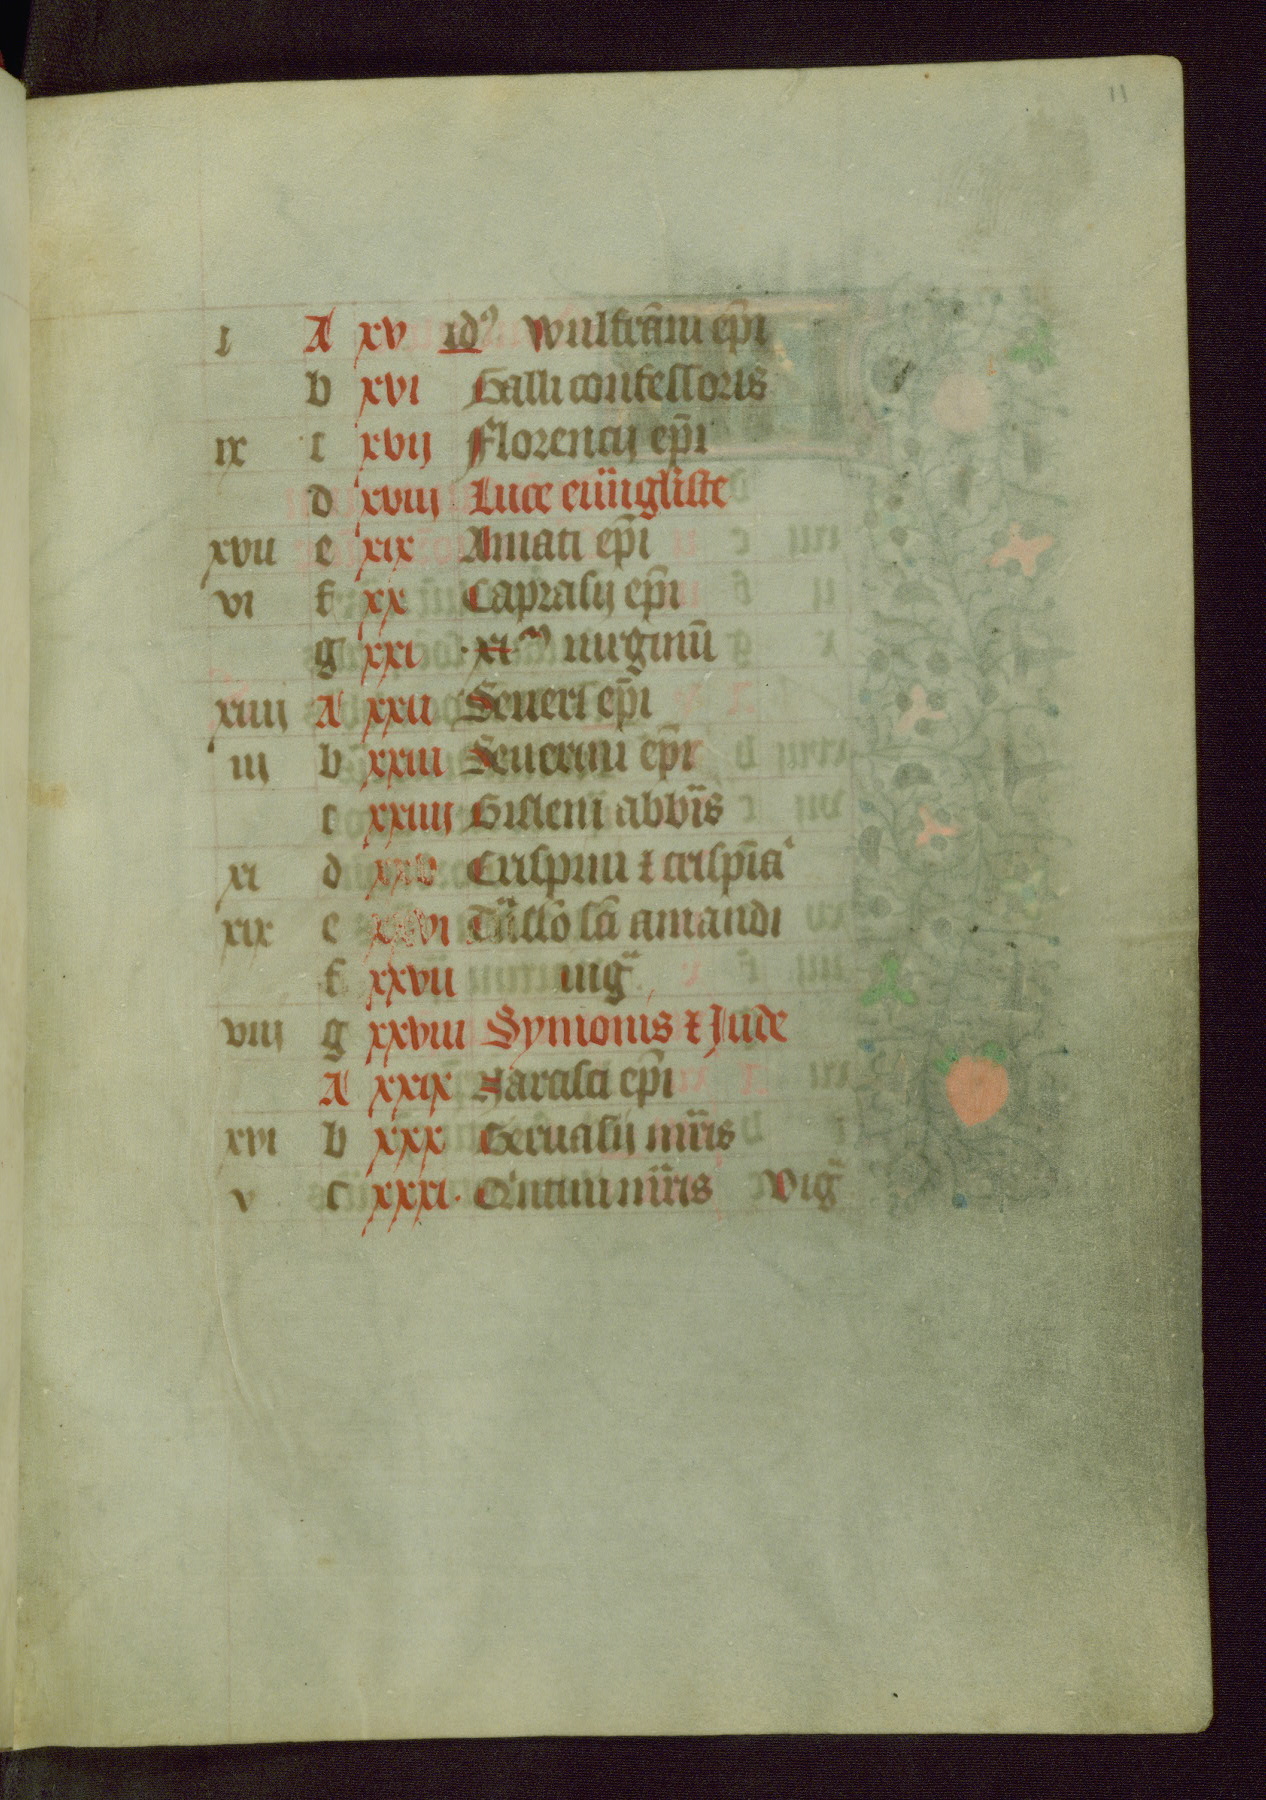 11
i A xv id9 Wulfrāni ep̄i
b xvi Galli confessoris
ix c xvij Florencij ep̄i
d xviij Luce euūgliste
xvii e xix Amati ep̄i
vi f xx Caprasij ep̄i
g xxi xim uirginū
xiiij A xxii Seueri ep̄i
iij b xxiii Seuerini ep̄i
c xxiiij Gisleni abbīs
xi d xxv Crispini ⁊ crispīa
xix e xxvi amandi
f xxvii uig
viij g xxviii Symonis ⁊ Jude
A xxix Narcisci ep̄i
xvi b xxx Geruasij mr̄is
v c xxxi Qintini mr̄is Vig